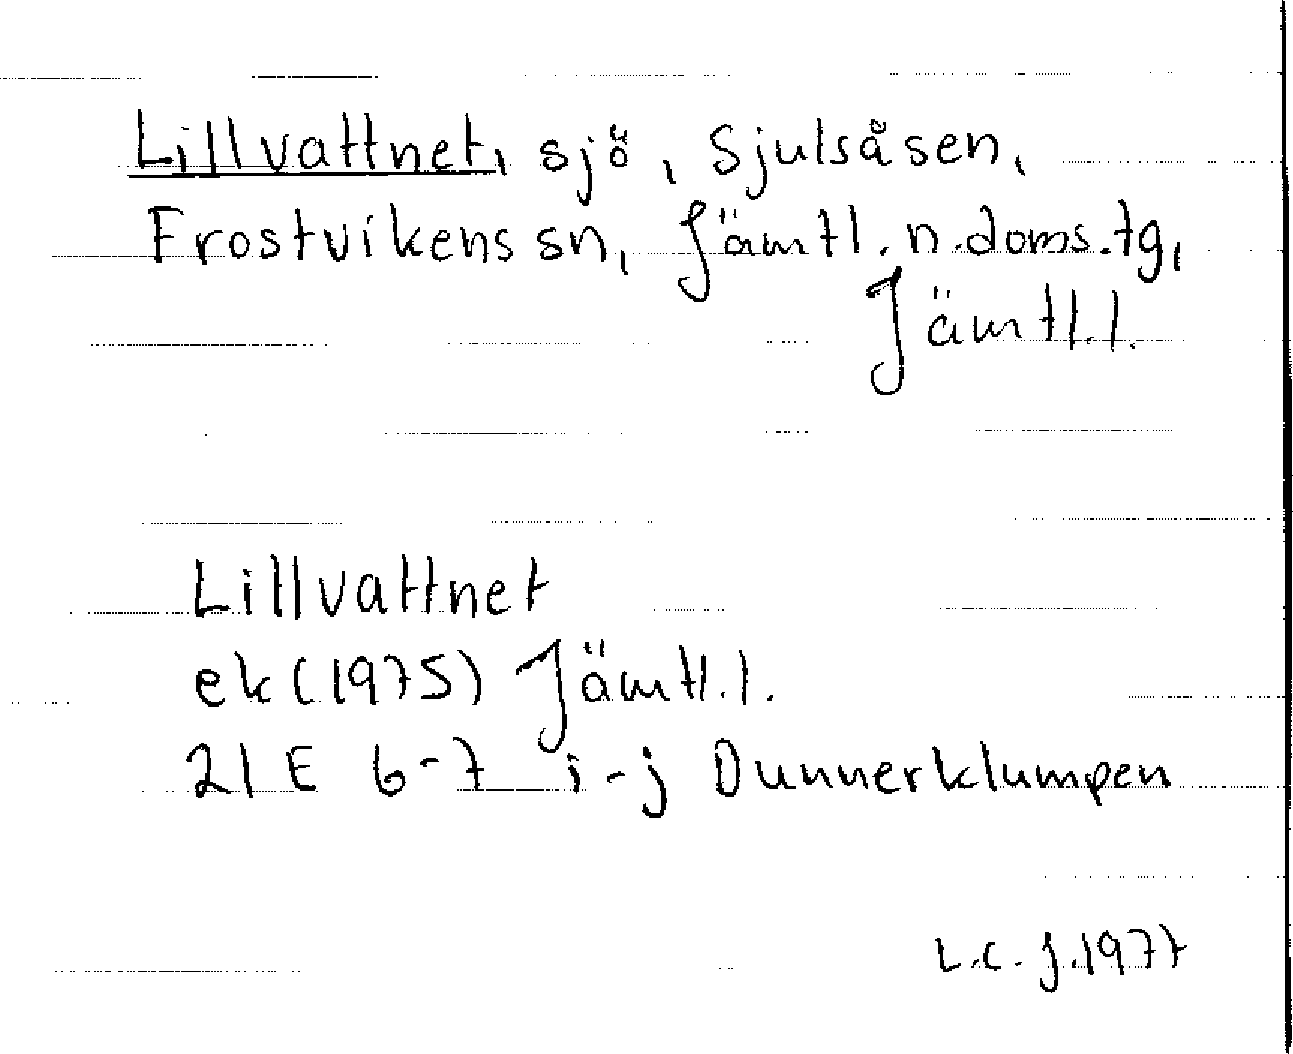 Lillvattnet, sjö, Sjulsåsen,
Frostvikens sn, Jämtl. n. doms. tg,
Jämtl. l.
Lillvattnet
ek (1975) Jämtl. l.
21 E 6-7 i-j Dunnerklumpen
L.C.J. 1977